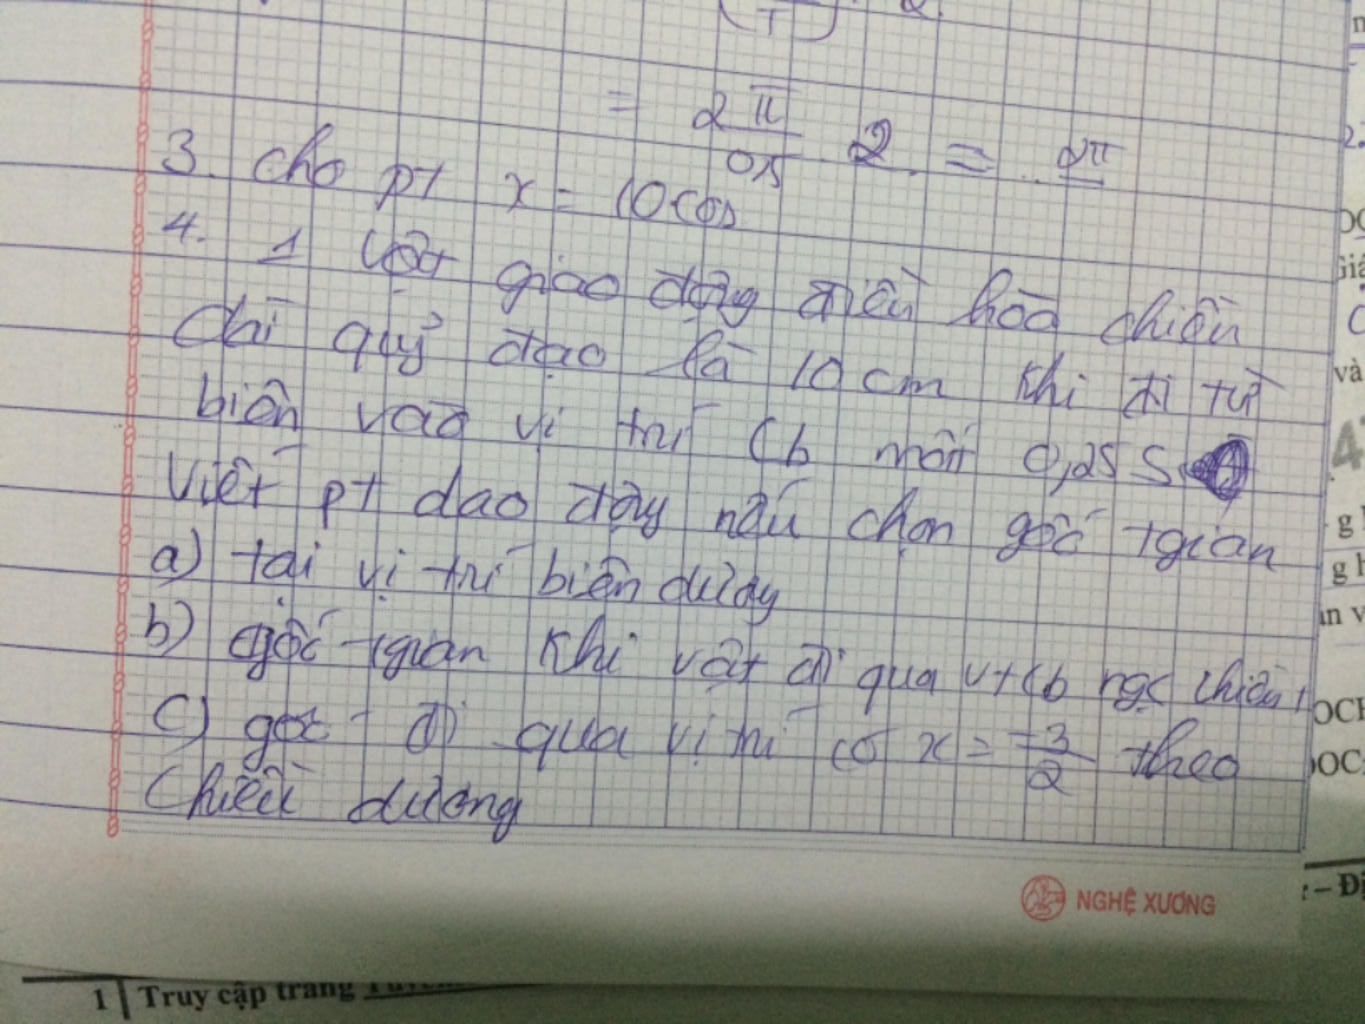 = 2π/0,5 . 2 = 2π
3. cho pt x = 10cos
4. 1 vật giao động điều hòa chiều
dài quỹ đạo là 10 cm khi đi từ
biên vào vị trí Cb mất 0,25 S
viết pt dao động nếu chọn gốc tgian
a) tại vị trí biên dương
b) gốc tgian khi vật đi qua vtcb ngc chiều
c) gốc t đi qua vị trí có x = -3/2 theo
chiều dương
NGHỆ XƯƠNG
1 | Truy cập trang